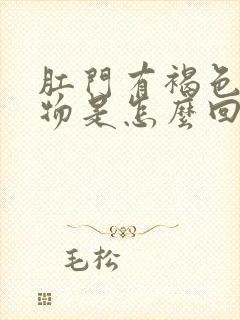 肛門有褐色
物是怎麼回
毛松